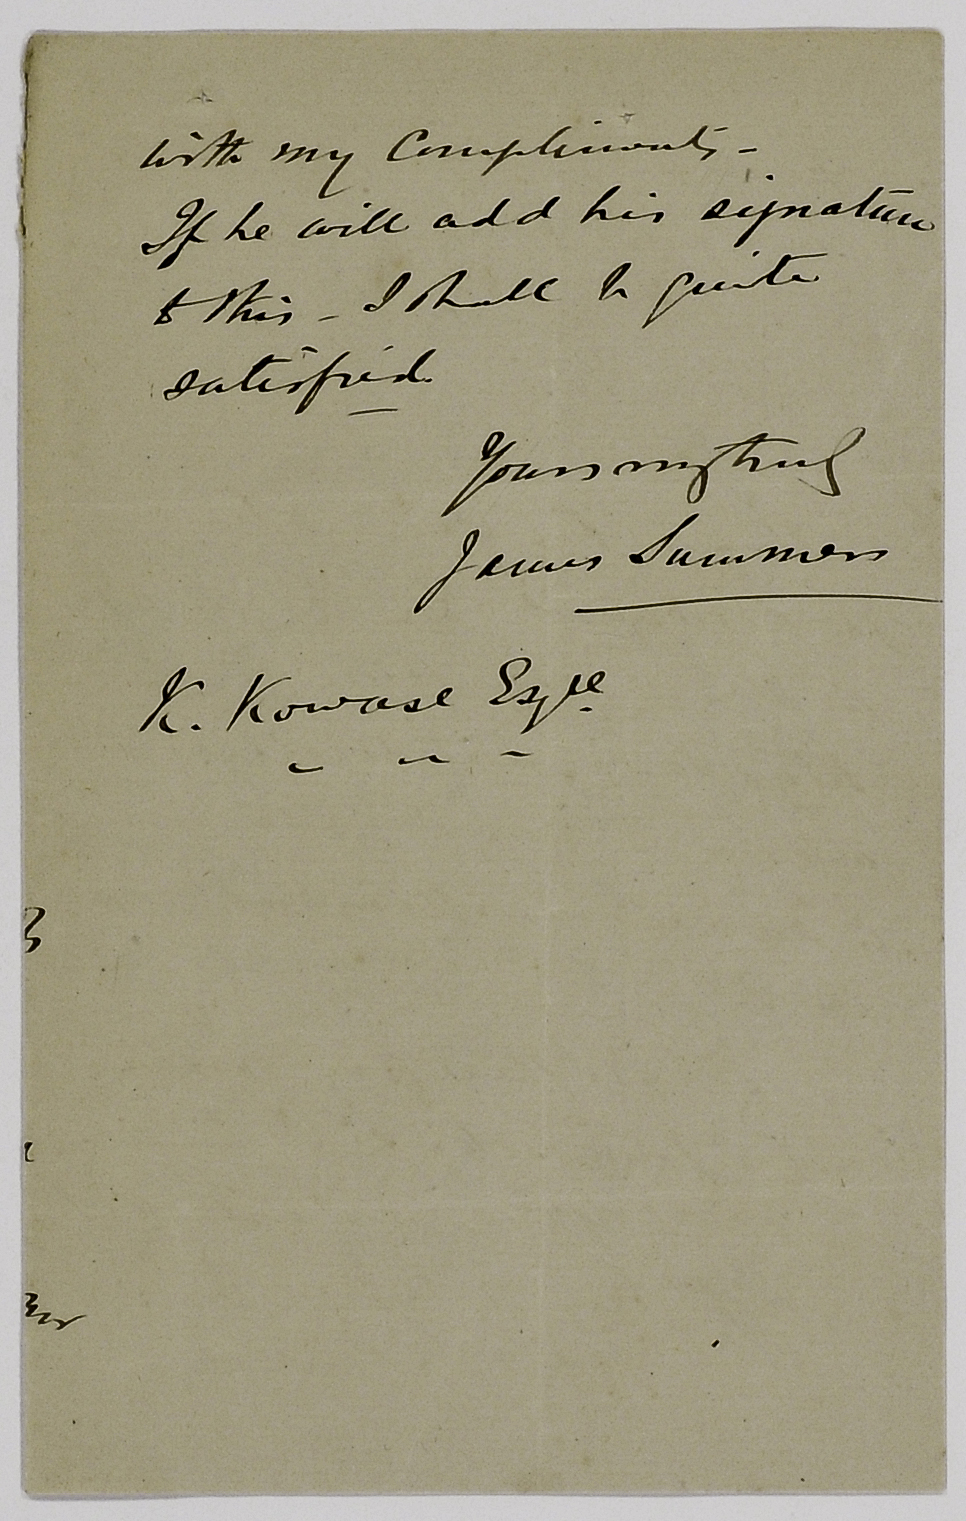 with my Compliments -
If he will add his signature
to this - I shall be quite
satisfied.
Yours very truly
James Summers
K. Kowase Esqre